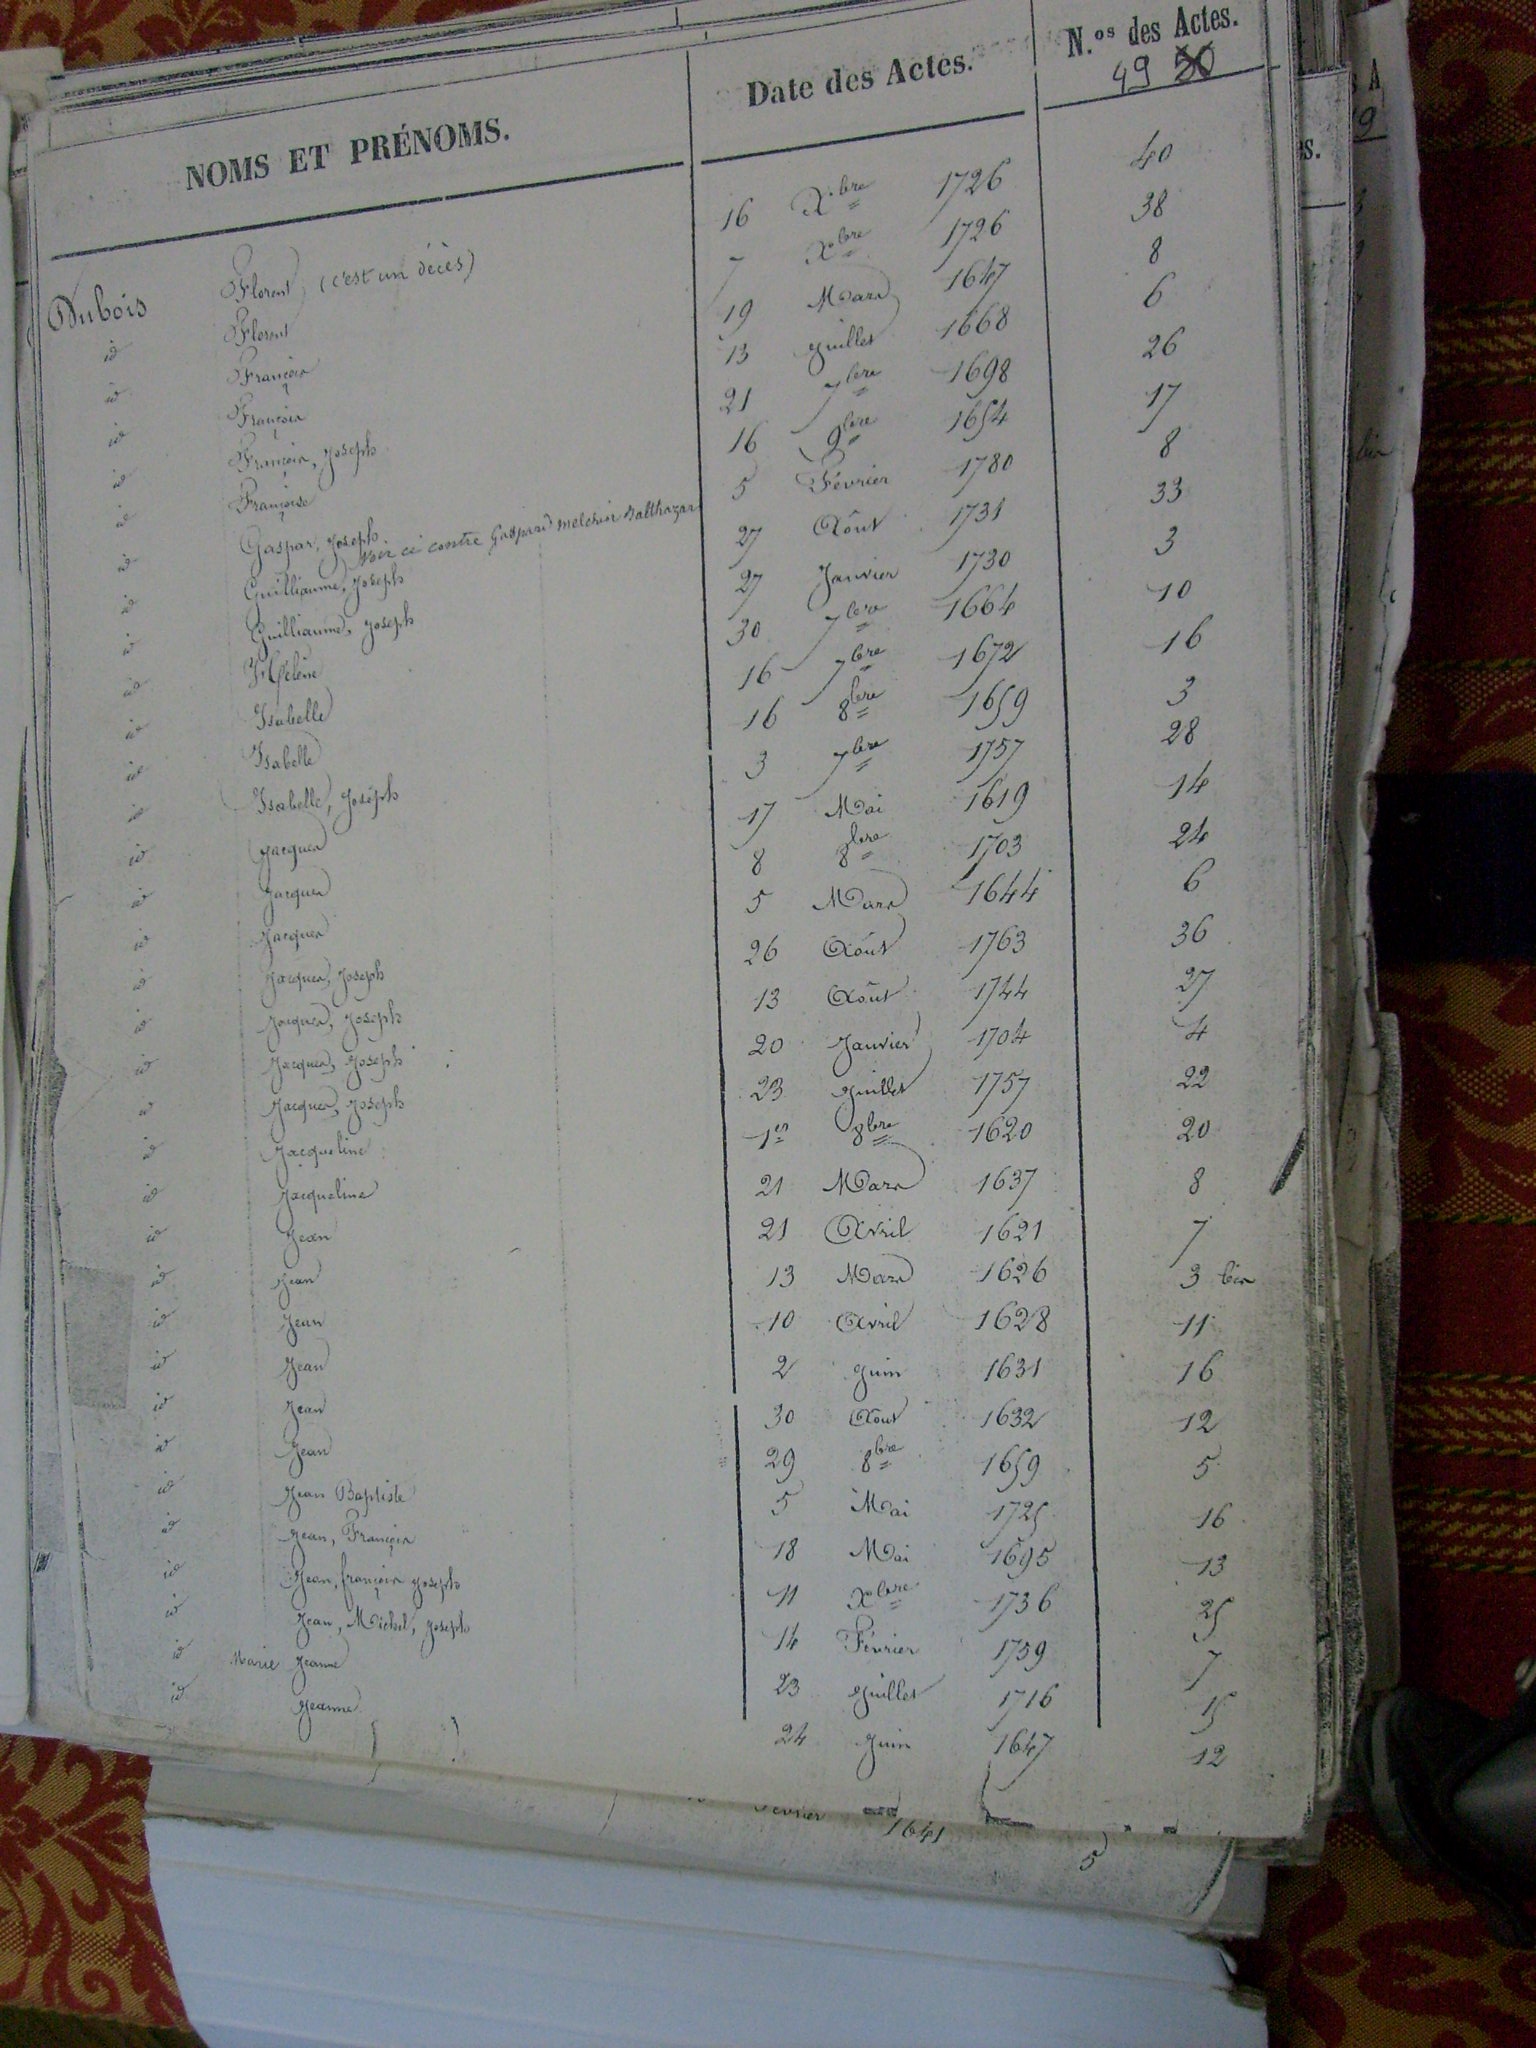 NOMS ET PRÉNOMS. Date des Actes. N.os des Actes.
49 50
Dubois Florent (c'est un décès) 16 Xbre 1726 40
id Florent 7 Xbre 1726 38
id François 19 Mars 1647 8
id François 13 Juillet 1668 6
id François, Joseph 21 7bre 1698 26
id Françoise 16 9bre 1654 17
id Gaspar, Joseph 5 Février 1780 8
Voir ci contre Gaspard melchior Balthazar
id Guilliaume, Joseph 27 Août 1731 33
id Guilliaume, Joseph 27 Janvier 1730 3
id Hélène 30 7bre 1664 10
id Isabelle 16 7bre 1672 16
id Isabelle 16 8bre 1659 3
id Isabelle, Joseph 3 7bre 1757 28
id Jacques 17 Mai 1619 14
id Jacques 8 8bre 1703 24
id Jacques 5 Mars 1644 6
id Jacques, Joseph 26 Août 1763 36
id Jacques, Joseph 13 Août 1744 27
id Jacques, Joseph 20 Janvier 1704 4
id Jacques, Joseph 23 Juillet 1757 22
id Jacqueline 1er 8bre 1620 20
id Jacqueline 21 Mars 1637 8
id Jean 21 Avril 1621 7
id Jean 13 Mars 1626 3 bis
id Jean 10 Avril 1628 11
id Jean 2 Juin 1631 16
id Jean 30 Août 1632 12
id Jean 29 8bre 1659 5
id Jean Baptiste 5 Mai 1725 16
id Jean, François 18 Mai 1695 13
id Jean, françois joseph 11 Xbre 1736 25
id Jean, Michel, Joseph 14 Février 1759 7
id Marie Jeanne 23 Juillet 1716 15
id Jeanne 24 Juin 1647 12
Février 1641 5